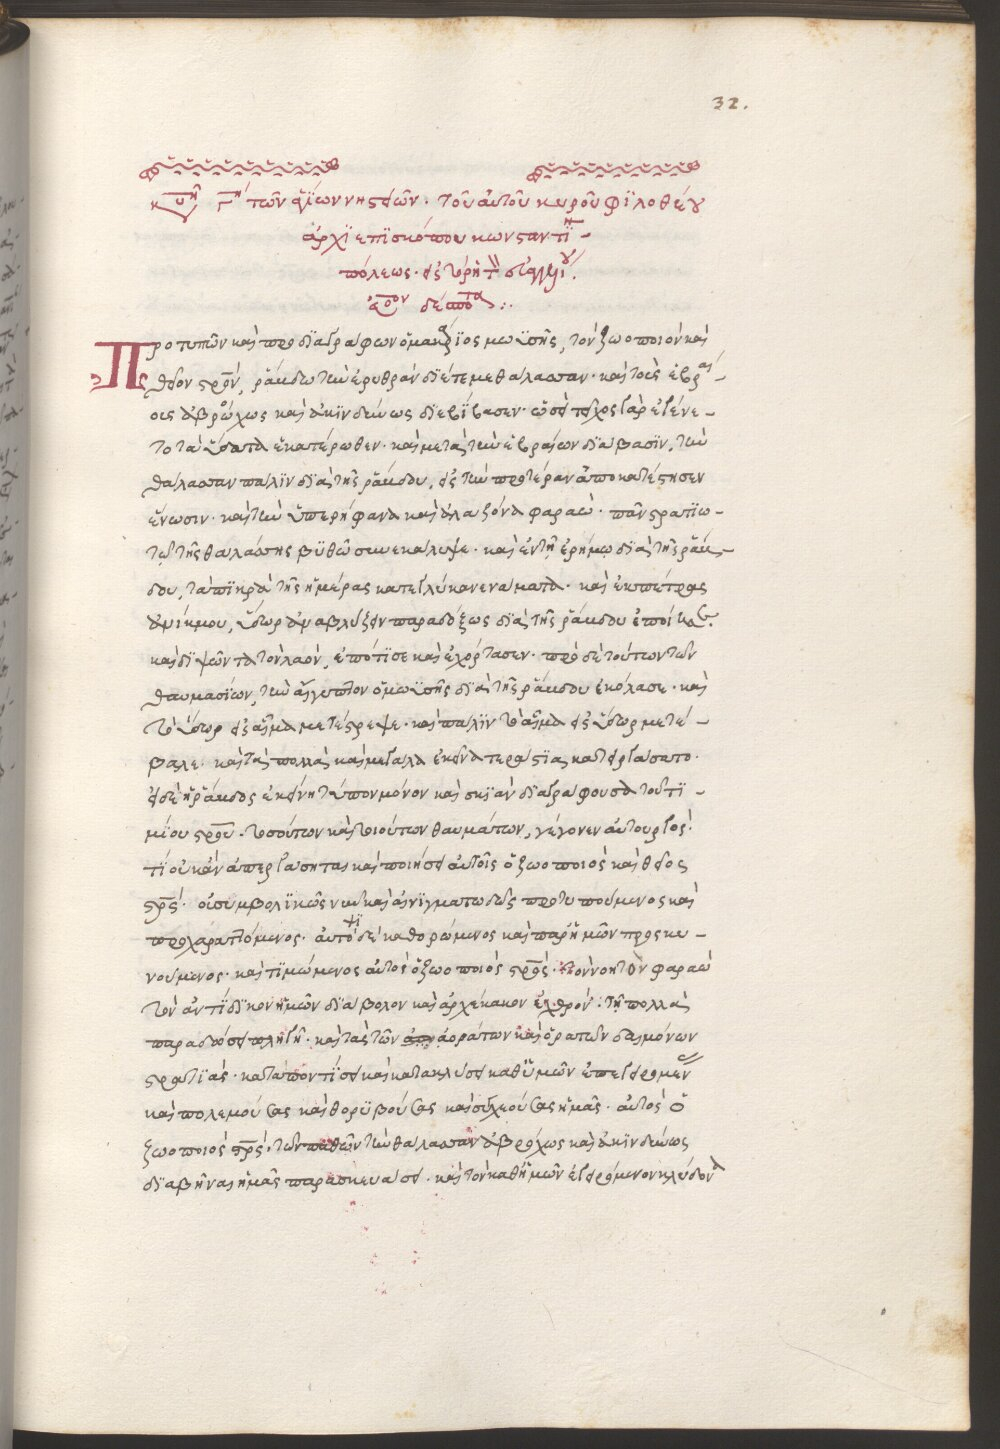 32.
κυ῀ῇ γ῀η τῶν ἁγίων νηστειῶν· τοῦ αὐτοῦ κυροῦ φϊλοθέου
ἀρχϊεπϊσκόπου κωνσταντϊ-
πόλεως·
δέσποτα
Προτυπῶν καὶ προδϊαγράφων ὁ μακάρϊος μωϋσῆς, τὸν ζωοποιὸν καὶ
θεῖον σταυρόν, ῥάβδω τὴν ἐρυθρὰν διέτεμε θάλασσαν· καὶ τοὺς ἑβραί-
ους ἀβρόχως καὶ ἀκϊνδύνως διεβϊβασεν· ὡσεὶ τεῖχος γὰρ ἐγένε-
το τὰ ὕδατα ἑκατέρωθεν· καὶ μετὰ τὴν ἑβραίων δϊάβασϊν, τὴν
θάλασσαν πάλϊν δϊὰ τῆς ῥάβδου, εἰς τὴν προτέραν ἀποκατέστησεν
ἕνωσιν· καὶ τὸν ὑπερήφανα καὶ ἀλαζόνα φαραώ· πανστρατϊω-
τεὶ τῆς θαλάσσης βϋθῶ συνεκάλυψε· καὶ ἐν τῇ ἐρήμω δϊὰ τῆς ῥάβ-
δου, τὰ πϊκρὰ τῆς ἡμέρας κατεγλύκανε νάματα· καὶ ἐκ πέτρας
ἀνίκμου, ὕδωρ ἀναβλύζειν παραδόξως δϊὰ τῆς ῥάβδου ἐποίησε·
καὶ δϊψῶντα τὸν λαὸν, ἐπότϊσε καὶ ἐχόρτασεν· πρὸ δὲ τούτων τῶν
θαυμασϊων, τὴν αἴγυπτον ὁ μωϋσῆς δϊὰ τῆς ῥάβδου ἐκόλασε· καὶ
τὸ ὕδωρ εἰς αἷμα μετέστρεψε· καὶ πάλϊν τὸ αἷμα εἰς ὕδωρ μετέ-
βαλε· καὶ τὰς πολλὰς καὶ μεγάλα ἐκεῖνα τερατϊας κατειργάσατο·
εἰ δὲ ἡ ῥάβδος ἐκείνη τύπον μόνον καὶ σκϊὰν δϊαγράφουσα τοῦ τϊ-
μίου σταυροῦ· τοσούτων καὶ τοιούτων θαυμάτων, γέγονεν αὐτουργός·
τί οὐκ ἂν ἀπεργάσηται καὶ ποιήσει αὐτοῖς ὁ ζωοποιὸς καὶ θεῖος
σταυρός· ὁ συμβολϊκῶς νῦν καὶ αἰνϊγματωδῶς προτυπούμενος καὶ
προχαραττόμενος· αὐτὸ δὲ καθορώμενος καὶ παρ' ἡμῶν προσκυ-
νούμενος· καὶ τϊμώμενος αὐτὸς ὁ ζωοποιὸς σταυρός· τὸν νοητὸν φαραὼ
τὸν ἀντϊδϊκον ἡμῶν δϊάβολον καὶ ἀρχέκακον ἐχθρόν· τῇ πολλὰ
παραδώσει πληγῇ· καὶ τὰς τῶν ἀοράτων καὶ ὁρατῶν δαιμόνων
στρατϊάς· καταποντϊσει καὶ κατακλύσει καθ' ἡμῶν ἐπεγειρομέν
καὶ πολεμούσας καὶ θορϋβούσας καὶ συγχεούσας ἡμᾶς· αὐτὸς ὁ
ζωοποιὸς σταυρός· τῶν παθῶν τὴν θάλασσαν ἀβρόχως καὶ ἀκϊνδύνως
δϊαβῆναι ἡμᾶς παρασκευάσει· καὶ τὸν καθ' ἡμῶν ἐγειρόμενον κλύδωνα